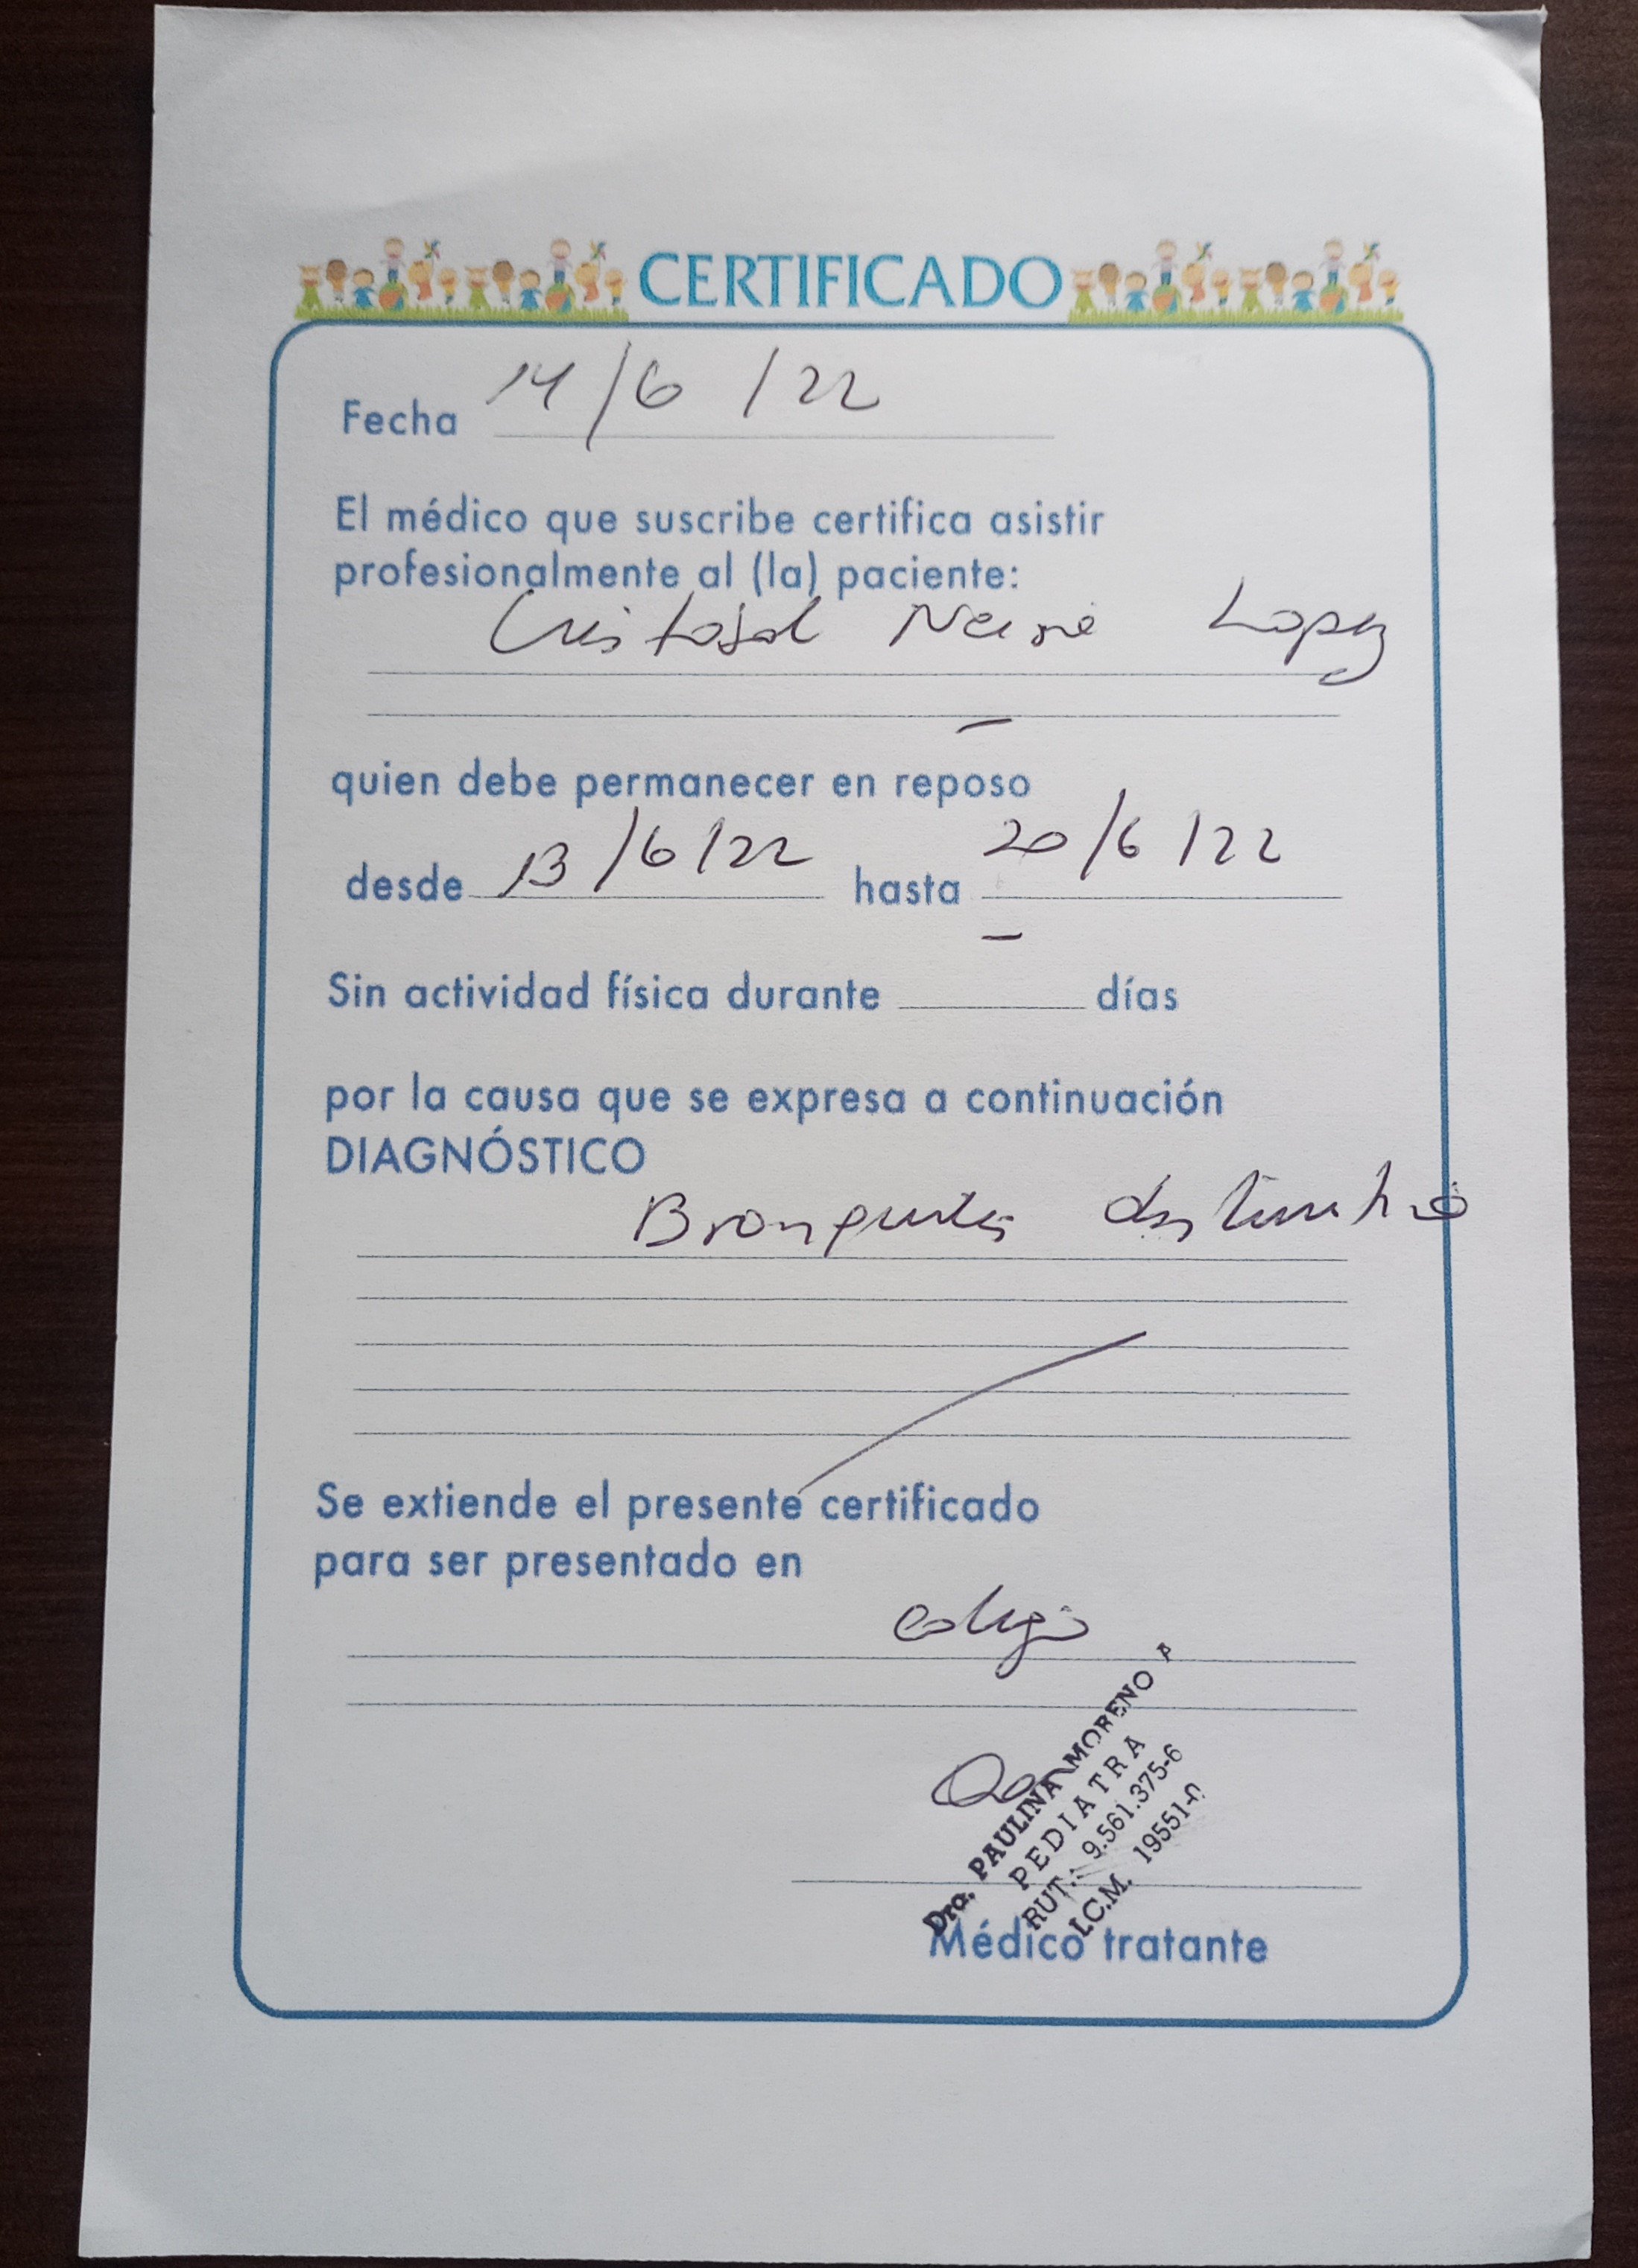 CERTIFICADO
Fecha 14/6/22
El médico que suscribe certifica asistir
profesionalmente al (la) paciente:
Cristobal Lopez
quien debe permanecer en reposo
desde 13/6/22 hasta 20/6/22
Sin actividad física durante días
por la causa que se expresa a continuación
DIAGNÓSTICO
Bronquitis
Se extiende el presente certificado
para ser presentado en
colegio
Dra. PAULINA MORENO
PEDIATRA
RUT.: 9.561.375-6
I.C.M. 19551-0
Médico tratante